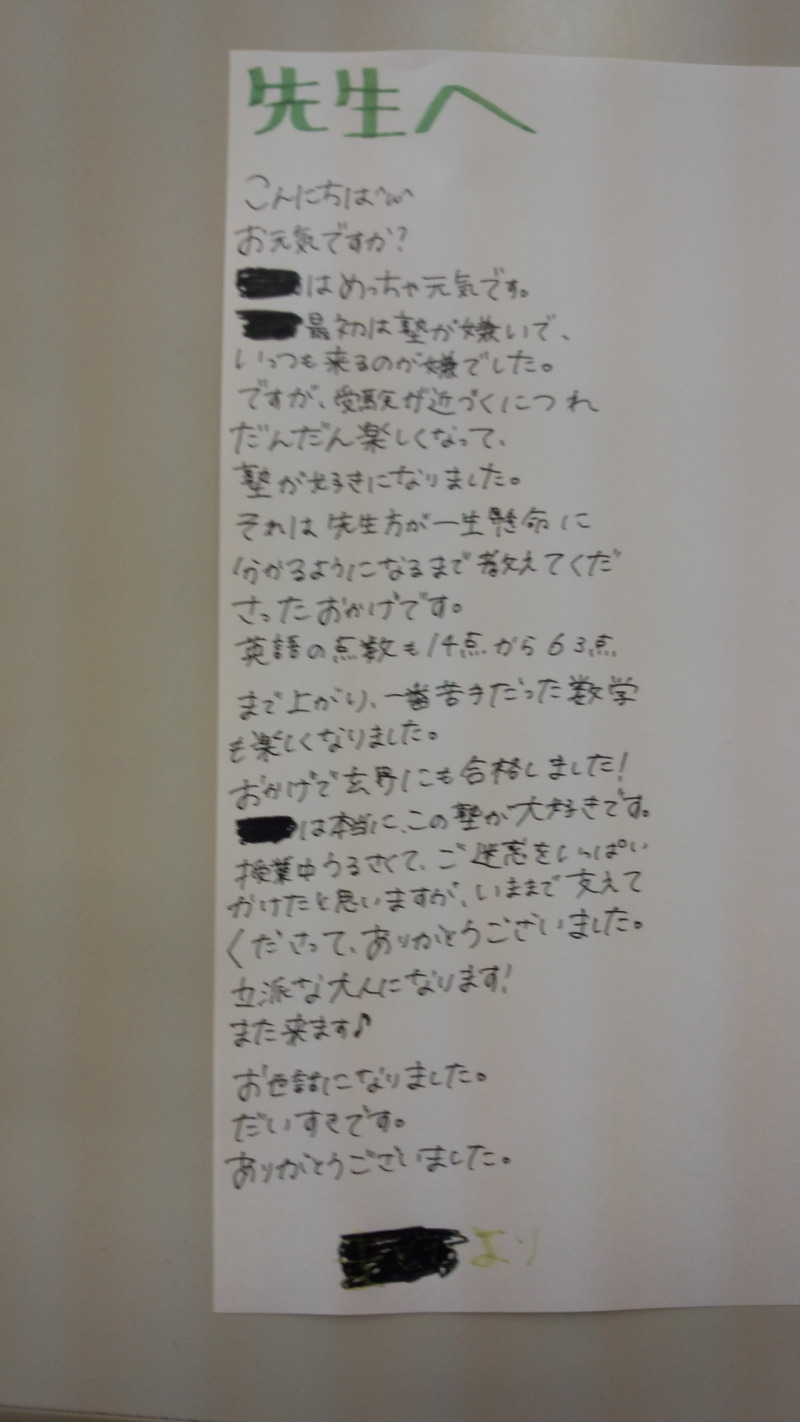 先生へ
こんにちは^ω^
お元気ですか?
はめっちゃ元気です。
最初は塾が嫌いで、
いっつも来るのが嫌でした。
ですが、受験が近づくにつれ
だんだん楽しくなって、
塾が好きになりました。
それは先生方が一生懸命に
分かるようになるまで教えてくだ
さったおかげです。
英語の点数も14点から63点
まで上がり、一番苦手だった数学
も楽しくなりました。
おかげで玄界にも合格しました!
は本当に、この塾が大好きです。
授業中うるさくて、ご迷惑をいっぱい
かけたと思いますが、いままで支えて
くださって、ありがとうございました。
立派な大人になります!
また来ます♪
お世話になりました。
だいすきです。
ありがとうございました。
より